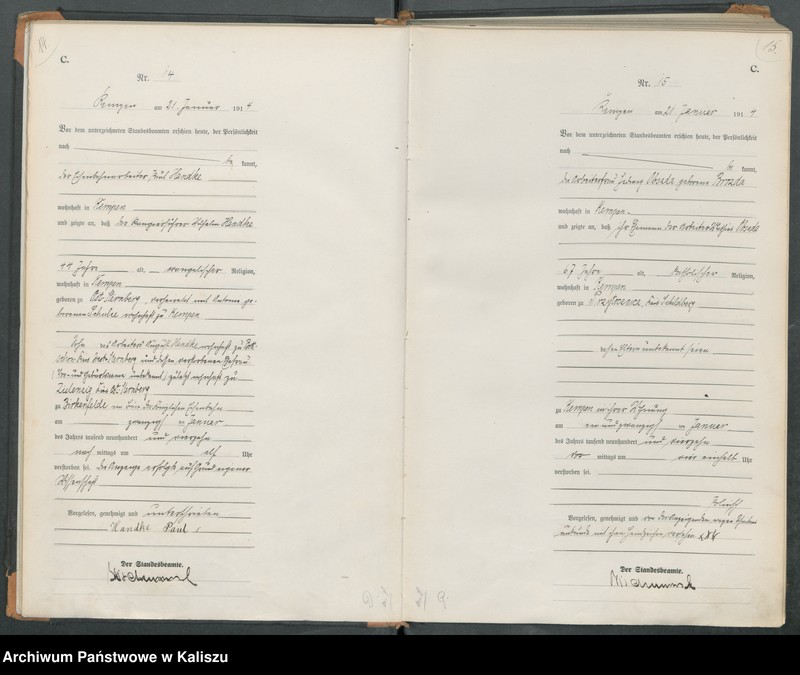 14
C.
Nr. 14
Kempen am 21. Januar 1914
Vor dem unterzeichneten Standesbeamten erschien heute, der Persönlichkeit
nach
be kannt,
der Eisenbahnarbeiter Paul Handke
wohnhaft in Kempen
und zeigte an, daß der Wilhelm Handke
44 Jahre alt, evangelischer Religion,
wohnhaft in Kempen
geboren zu Ost. Sternberg, verheiratet mit
borenen Schulze wohnhaft zu Kempen
Sohn des Arbeiters August Handke wohnhaft zu
Kreis Sternberg und dessen verstorbenen Ehefrau
unbekannt zuletzt wohnhaft zu
Zielenzig Kreis Ost. Sternberg
zu Birkenfelde
am zwanzig ten Januar
des Jahres tausend neunhundert und vierzehn
nach mittags um elf Uhr
verstorben sei. Die Anzeige erfolgte auf Grund eigener
Wissenschaft
Vorgelesen, genehmigt und unterschrieben
Handke Paul
Der Standesbeamte.
15.
C.
Nr. 15
Kempen am 21. Januar 1914
Vor dem unterzeichneten Standesbeamten erschien heute, der Persönlichkeit
nach
be kannt,
die Arbeiterfrau Hedwig geborene
wohnhaft in Kempen
und zeigte an, daß ihr Ehemann der Arbeiter
67 Jahre alt, katholischer Religion,
wohnhaft in Kempen
geboren zu Kreis Schildberg
dessen Eltern unbekannt seien
zu Kempen in ihrer Wohnung
am ein und zwanzig ten Januar
des Jahres tausend neunhundert und vierzehn
vor mittags um vier einhalb Uhr
verstorben sei.
Vorgelesen, genehmigt und von der Anzeigenden wegen Schreibens
unkunde mit ihrem Handzeichen versehen. xxx
Der Standesbeamte.
Archiwum Państwowe w Kaliszu